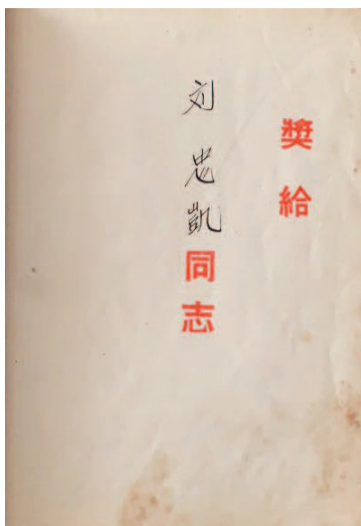 獎給
刘忠凯同志